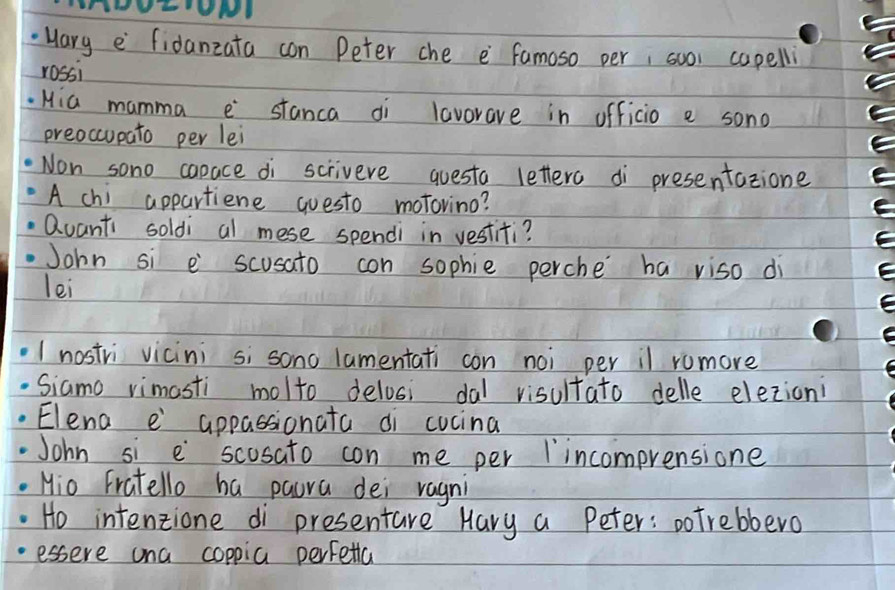 TRADUZIONI
• Mary e' fidanzata con Peter che e' famoso per i suoi capelli
rossi
• Mia mamma e' stanca di lavorare in ufficio e sono
preoccupato per lei
• Non sono capace di scrivere questa lettera di presentazione
• A chi appartiene questo motorino?
• Quanti soldi al mese spendi in vestiti?
• John si e' scusato con sophie perche' ha riso di
lei
• I nostri vicini si sono lamentati con noi per il rumore
• Siamo rimasti molto delusi dal risultato delle elezioni
• Elena e' appassionata di cucina
• John si e' scusato con me per l'incomprensione
• Mio fratello ha paura dei ragni
• Ho intenzione di presentare Mary a Peter: potrebbero
• essere una coppia perfetta